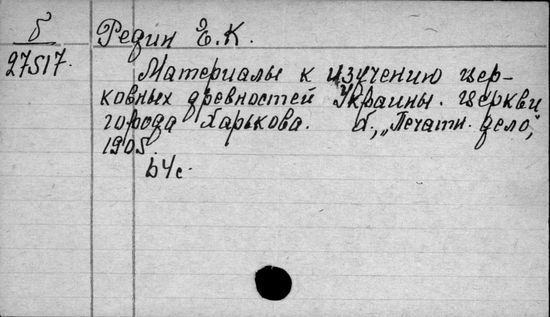 б
27517.
Редин Е. К.
Материалы к изучению цер-
ковных древностей Украины. Церкви
города Харькова. Х., „Печатн. дело",
1905.
64с.